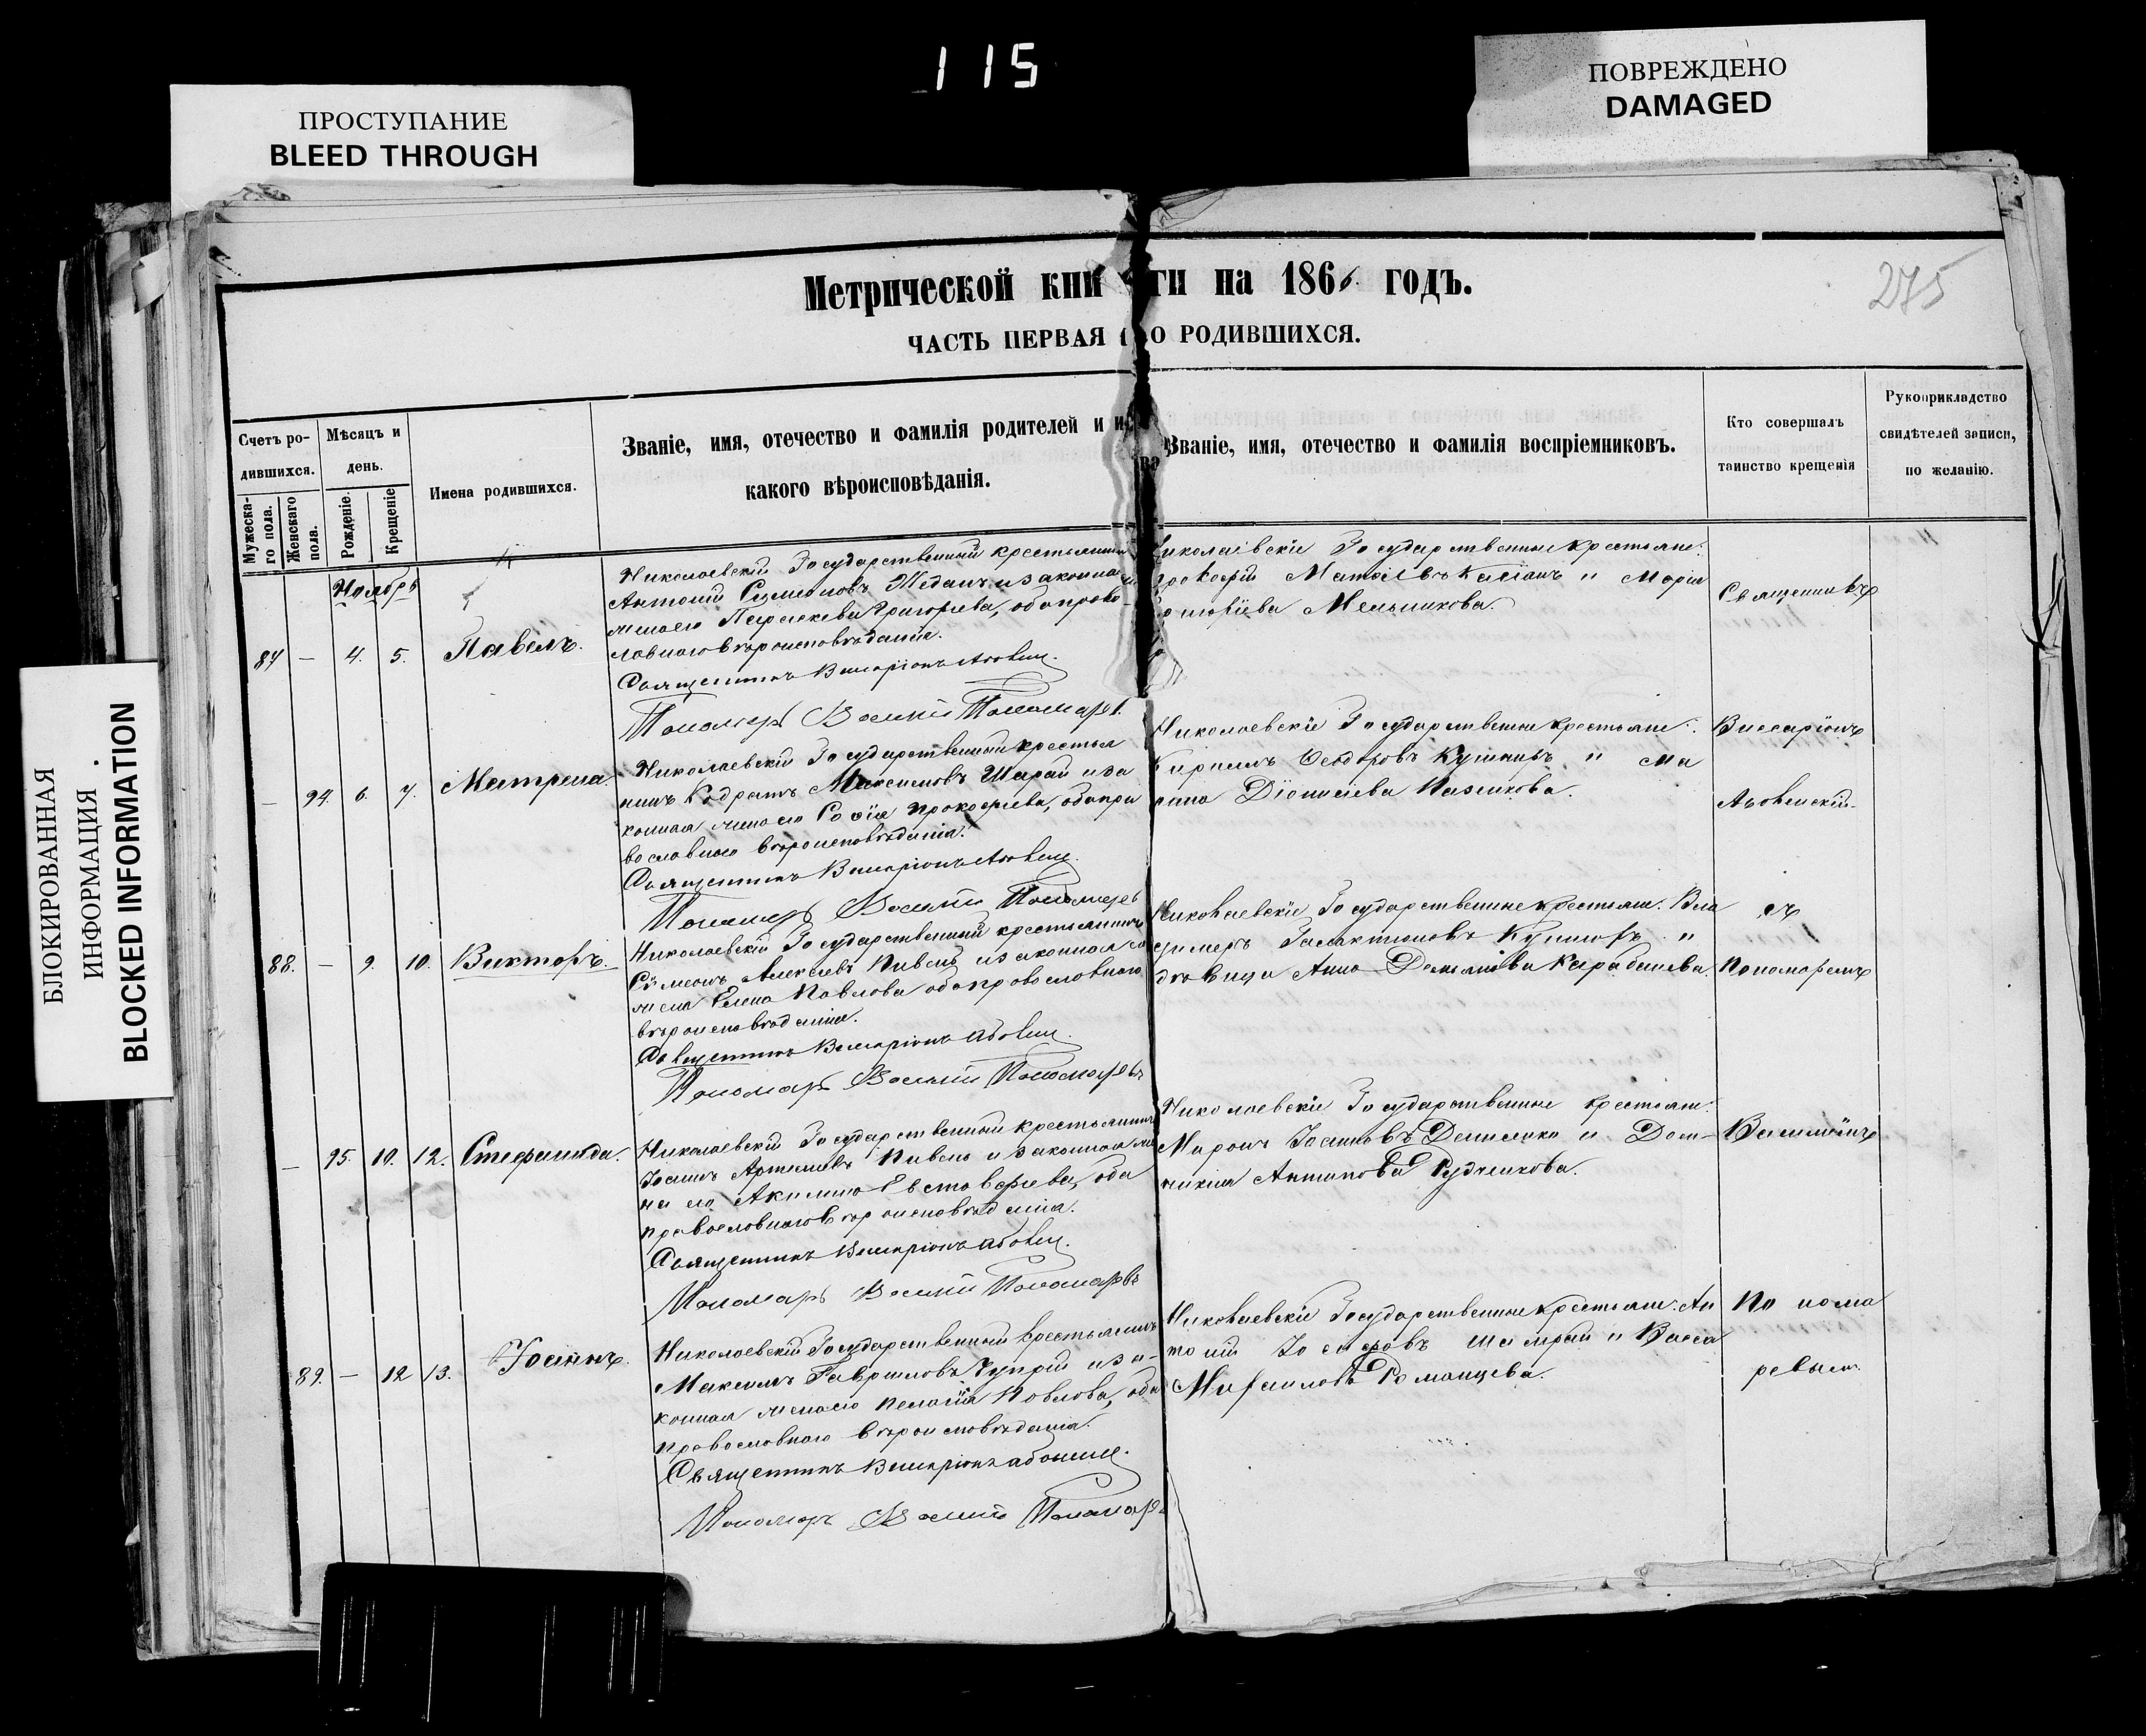 115
ПРОСТУПАНИЕ
BLEED THROUGH
ПОВРЕЖДЕНО
DAMAGED
БЛОКИРОВАННАЯ
ИНФОРМАЦИЯ
BLOCKED INFORMATION
275
Метрической кни ги на 1866 годъ.
ЧАСТЬ ПЕРВАЯ О РОДИВШИХСЯ.
Счетъ ро-
дившихся.
Мужеска-
го пола.
Женскаго
пола.
Мѣсяцъ и
день.
Рожденіе.
Крещеніе
Имена родившихся.
Званіе, имя, отечество и фамилія родителей и
какого вѣроисповѣданія.
Званіе, имя, отечество и фамилія воспріемниковъ.
Кто совершалъ
таинство крещенія
Рукоприкладство
свидѣтелей записи,
по желанію.
Ноябрь
84 — 4. 5. Павелъ.
Николаевскій Государственный крестьянинъ
Антоній Симеоновъ
Параскева Григорьева, оба право-
славнаго вѣроисповѣданія.
Священникъ Виссаріонъ
Пономарь Василій Пономаревъ
Государственные крестьяне:
Матѳіевъ и Марія
Мельникова.
Священникъ
— 94. 6. 7. Матрена.
Николаевскій Государственный крестья
нинъ Кодратъ Максимовъ Шарай и за
конная жена его Софія Прокофіева, оба пра
вославнаго вѣроисповѣданія.
Священникъ Виссаріонъ
Пономарь Василій Пономаревъ
Николаевскіе Государственные крестьяне:
Кириллъ Ѳеодоровъ Кушниръ и Ма
рина Діонисіева
Виссаріонъ
88. — 9. 10. Викторъ.
Николаевскій Государственный крестьянинъ
Сѵмеонъ Алексѣевъ и законная
жена Елена Павлова оба православнаго
вѣроисповѣданія.
Священникъ Виссаріонъ
Пономарь Василій Пономаревъ
Николаевскіе Государственные крестьяне: Вла
димеръ Галактіоновъ и
дѣвица Анна Даміанова
съ
Пономаремъ
— 95. 10. 12. Стефанида.
Николаевскій Государственный крестьянинъ
Іоаннъ Артемьевъ и законная же
на его Акилина Евстафіева, оба
православнаго вѣроисповѣданія.
Священникъ Виссаріонъ
Пономарь Василій Пономаревъ
Николаевскіе Государственные крестьяне:
Миронъ Іоанновъ Даниленко и Дом-
никія Антипова Рудчикова.
Василіемъ
89. — 12 13. Іоаннъ.
Николаевскій Государственный крестьянинъ
Максимъ Гавриловъ Чуприй и за-
конная жена его Пелагія Павлова, оба
православнаго вѣроисповѣданія.
Священникъ Виссаріонъ
Пономарь Василій Пономаревъ
Николаевскіе Государственные крестьяне: Ан
тоній Іосифовъ Шамрай и Васса
Михаилова Романцева.
Понома
ревымъ.